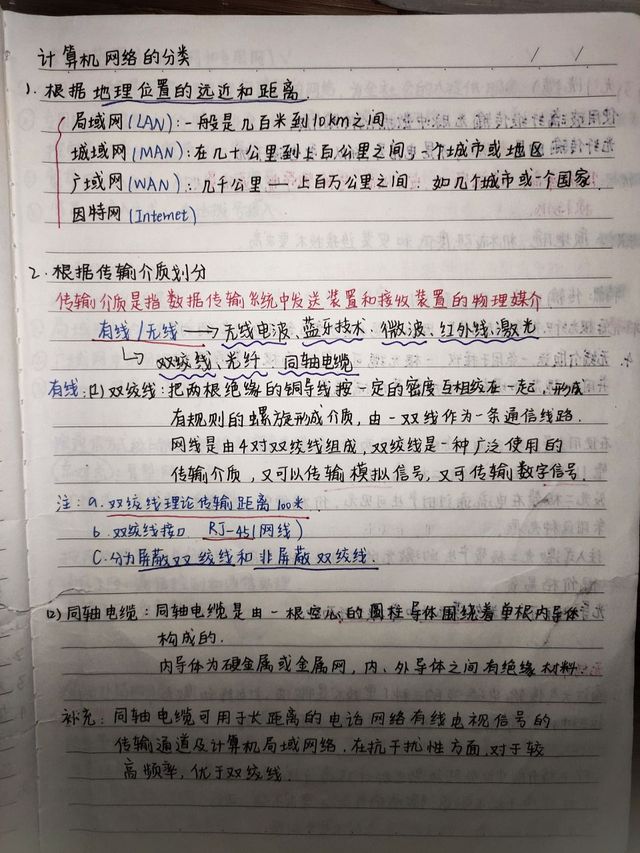 计算机网络的分类
1. 根据地理位置的远近和距离
局域网(LAN):一般是几百米到10km之间
城域网(MAN):在几十公里到上百公里之间,一个城市或地区
广域网(WAN):几千公里—上百万公里之间.如几个城市或一个国家
因特网(Internet)
2. 根据传输介质划分
传输介质是指数据传输系统中发送装置和接收装置的物理媒介
有线/无线→无线电波、蓝牙技术、微波、红外线、激光
↳双绞线、光纤、同轴电缆
有线:(1)双绞线:把两根绝缘的铜导线按一定的密度互相绞在一起,形成
有规则的螺旋形成介质,由一双线作为一条通信线路.
网线是由4对双绞线组成,双绞线是一种广泛使用的
传输介质,又可以传输模拟信号,又可传输数字信号.
注:a.双绞线理论传输距离100米
b.双绞线接口 RJ-45(网线)
C.分为屏蔽双绞线和非屏蔽双绞线.
(2)同轴电缆:同轴电缆是由一根空心的圆柱导体围绕着单根内导体
构成的.
内导体为硬金属或金属网,内、外导体之间有绝缘材料.
补充:同轴电缆可用于长距离的电话网络有线电视信号的
传输通道及计算机局域网络.在抗干扰性方面,对于较
高频率,优于双绞线.